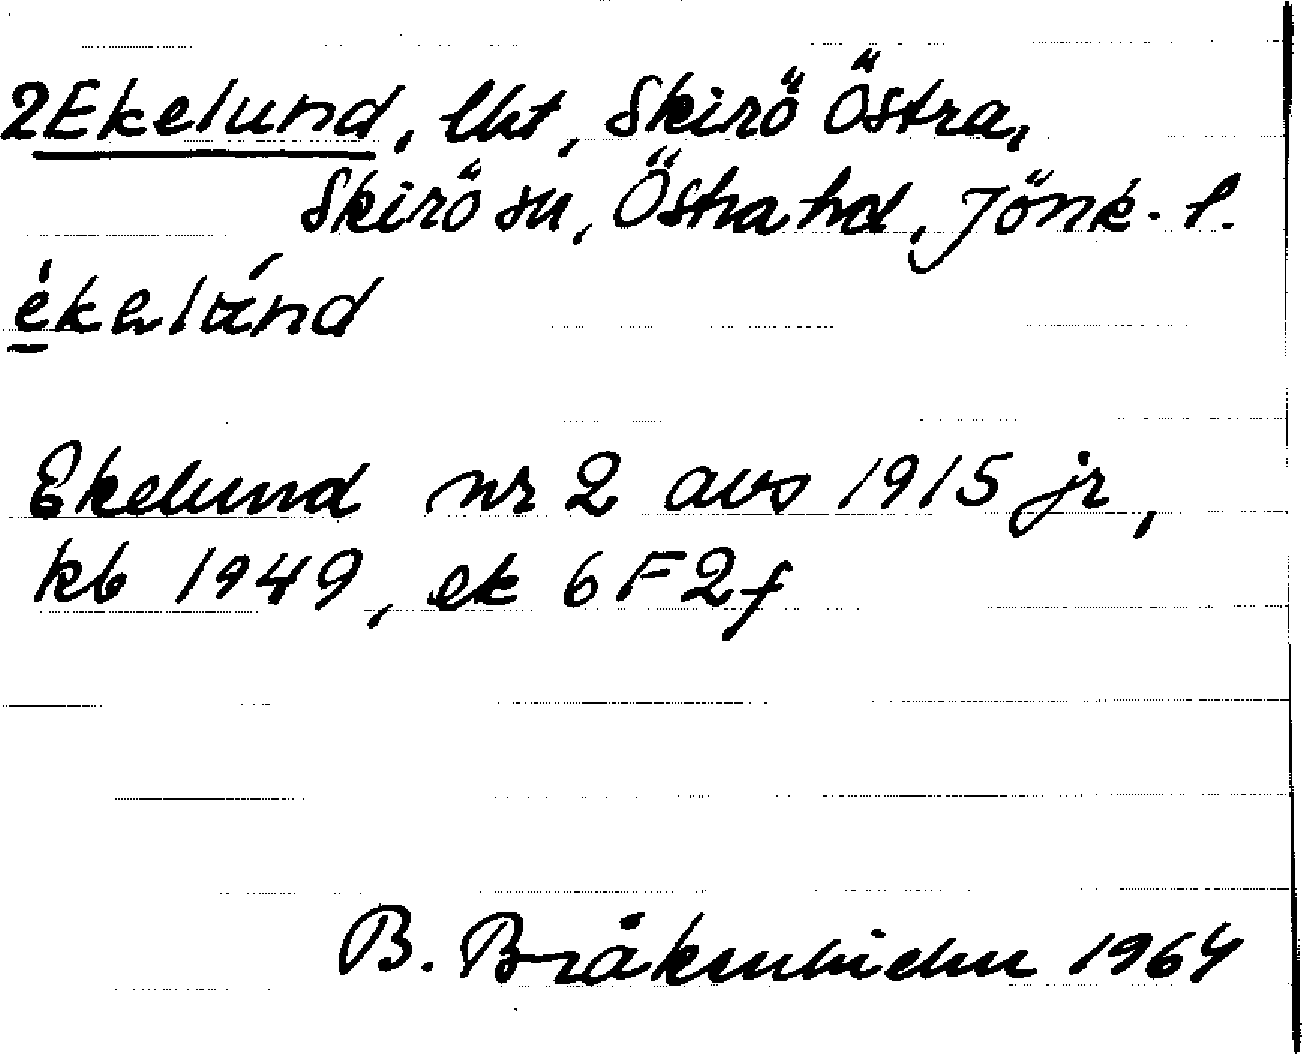 2 Ekelund, lht, Skirö Östra,
Skirö sn, Östra hd, Jönk. l.
èkelánd
Ekelund nr 2 avs 1915 jr,
kb 1949, ek 6F2f
B. Bråkenhielm 1964